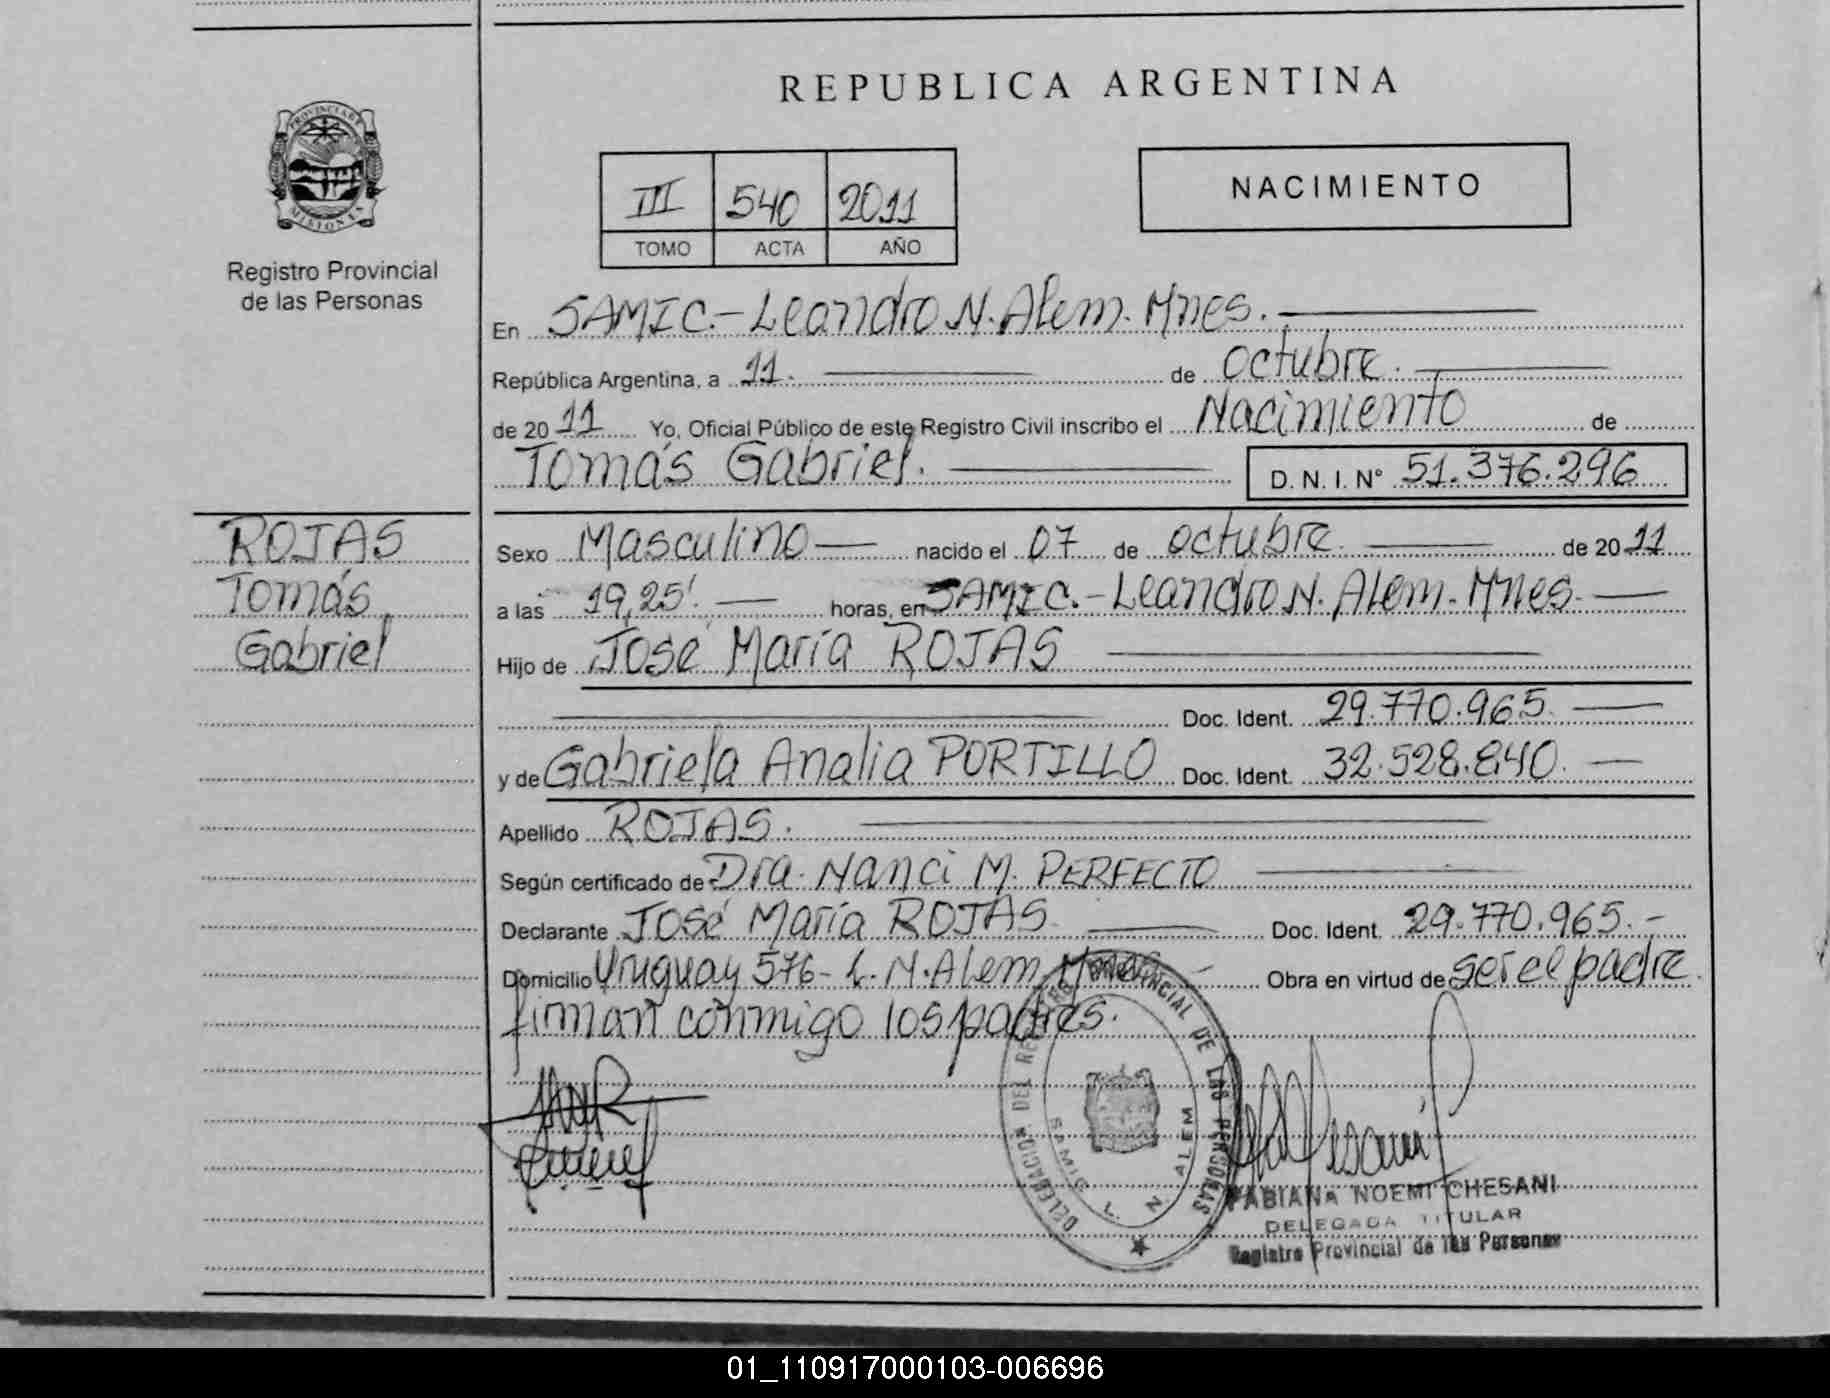 REPUBLICA ARGENTINA
PROVINCIA DE
MISIONES
Registro Provincial
de las Personas
III 540 2011
TOMO ACTA AÑO
NACIMIENTO
En SAMIC.- Leandro N. Alem. Mnes.
República Argentina, a 11. de octubre.
de 2011 Yo, Oficial Público de este Registro Civil inscribo el Nacimiento de
Tomás Gabriel. D. N. I. N° 51.376.296
ROJAS
Tomás
Gabriel
Sexo Masculino nacido el 07 de octubre. de 2011
a las 19,25'. horas, en SAMIC.- Leandro N. Alem. Mnes.
Hijo de José María ROJAS
Doc. Ident. 29.770.965.
y de Gabriela Analia PORTILLO Doc. Ident. 32.528.840.
Apellido ROJAS.
Según certificado de Dra. Nanci M. PERFECTO
Declarante José María ROJAS Doc. Ident. 29.770.965.-
Domicilio Uruguay 576- L. N. Alem. Mnes.- Obra en virtud de ser el padre.
firman conmigo los padres.
DELEGACION DEL REGISTRO PROVINCIAL DE LAS PERSONAS
SAMIC L. N. ALEM
FABIANA NOEMI CHESANI
DELEGADA TITULAR
Registro Provincial de las Personas
01_110917000103-006696